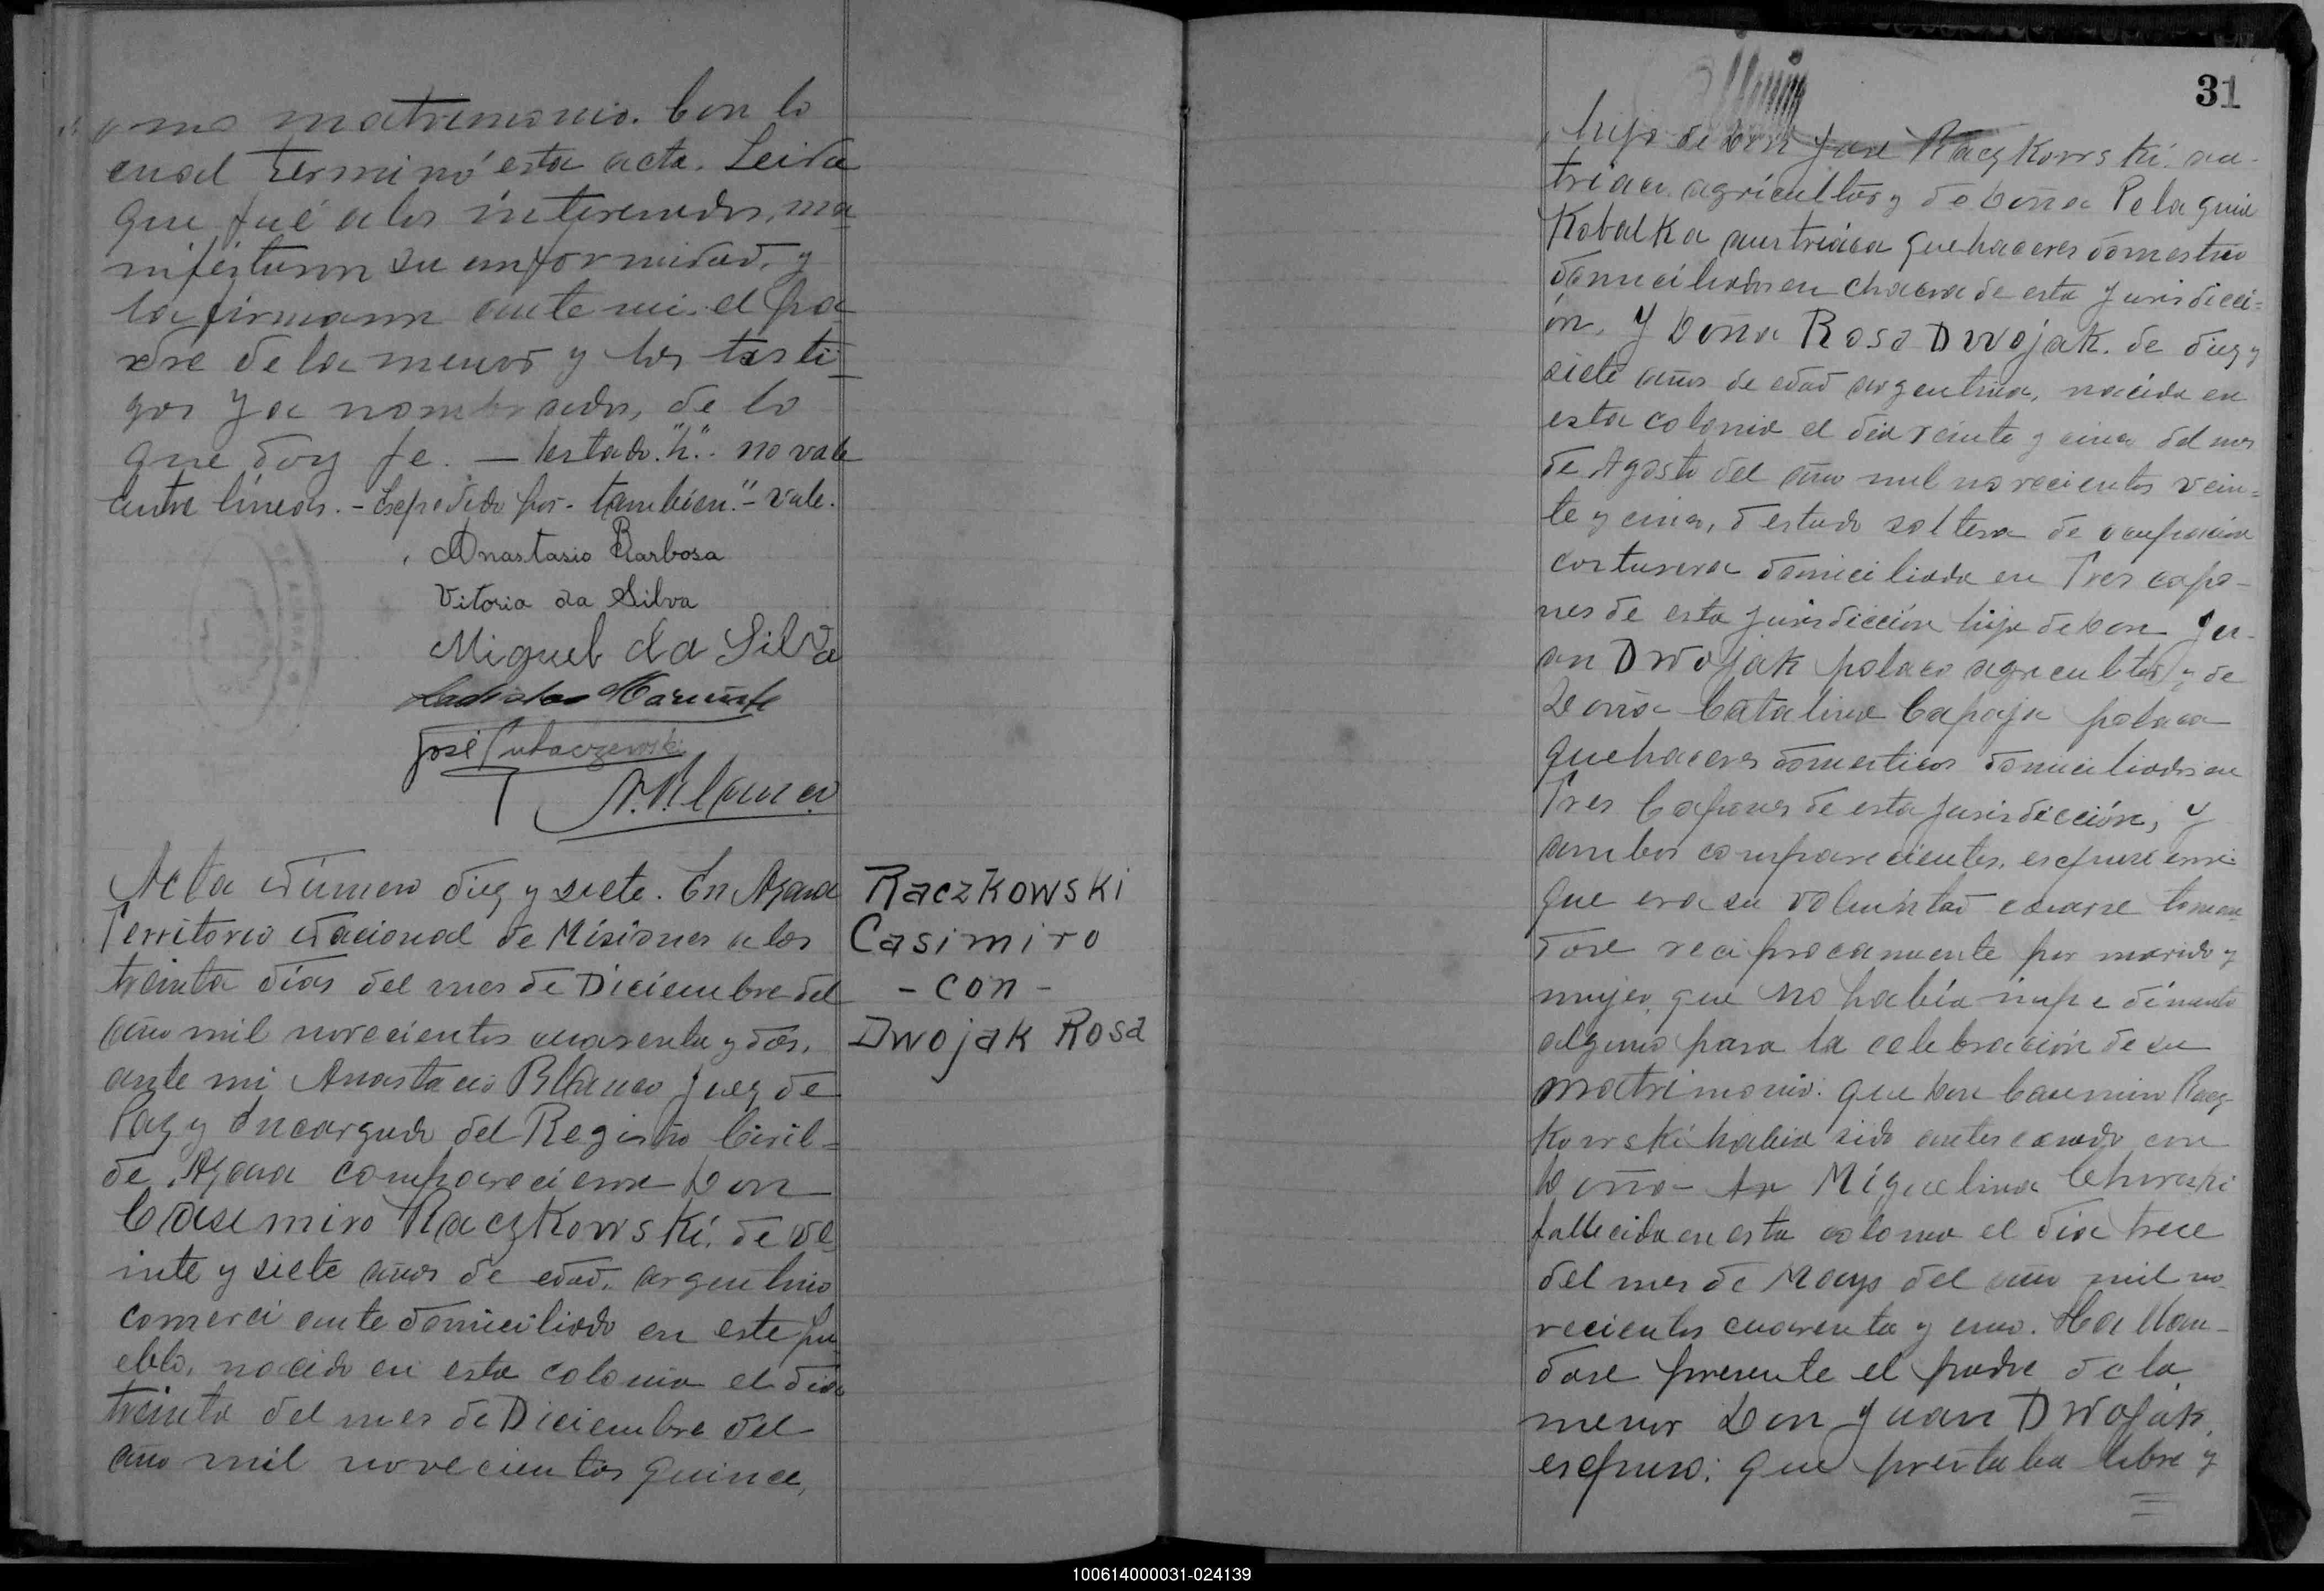 mo matrimonio. Con lo
cual terminó esta acta. Leida
que fué a los interesados, ma
nifestaron su conformidad, y
la firmaron ante mi el pa
dre de la menor y los testi
gos ya nombrados, de lo
que doy fe. — testado. "h". no vale
Entre líneas. - Espedido por - tambien." - vale.
Anastasio Barbosa
Vitoria da Silva
Miguel da Silva
Ladislao
José
A. Blanco
Acta Número diez y siete. En Azara
Territorio Nacional de Misiones a los
treinta días del mes de Diciembre del
año mil novecientos cuarenta y dos,
ante mi Anastacio Blanco Juez de
Paz y Encargado del Registro Civil =
de Azara comparecieron Don
Casemiro Raczkowski. de ve
inte y siete años de edad. argentino
comerciante domiciliado en este pu
eblo, nacido en esta colonia el día
treinta del mes de Diciembre del
año mil novecientos quince,
Raczkowski
Casimiro
- con -
Dwojak Rosa
31
hijo de Don José Raczkowski. aus
triaco agricultor y de Doña Pelagia
Kobalka austriaca quehaceres domestico
domiciliados en chacra de esta jurisdicci=
ón. Y Doña Rosa Dwojak. de diez y
siete años de edad argentina, nacida en
esta colonia el día veinte y cinco del mes
de Agosto del año mil novecientos vein=
te y cinco, d estado soltera de ocupación
costurera domiciliada en Tres capo-
nes de esta jurisdicción hija de Don Ju-
an Dwojak polaco agricultor y de
Doña Catalina Capaja polaca
quehaceres domesticos domiciliados en
Tres Capones de esta jurisdicción, y
ambos comparecientes,
que era su voluntad casarse toman
dose reciprocamente por marido y
mujer, que no había impedimento
alguno para la celebración de su
matrimonio: que Don Casemiro Racz-
kowski habia sido antes casado con
Doña Miguelina
fallecida en esta colonia el día trece
del mes de Mayo del año mil no
vecientos cuarenta y uno. Hallan-
dose presente el padre de la
menor Don Juan Dwojak,
espuso: que prestaba libre y
100614000031-024139